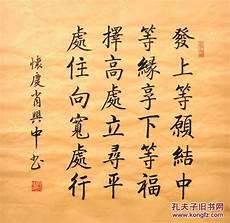 發上等願結中
等緣享下等福
擇高處立尋平
處住向寬處行
懷慶肖興中书
孔夫子旧书网